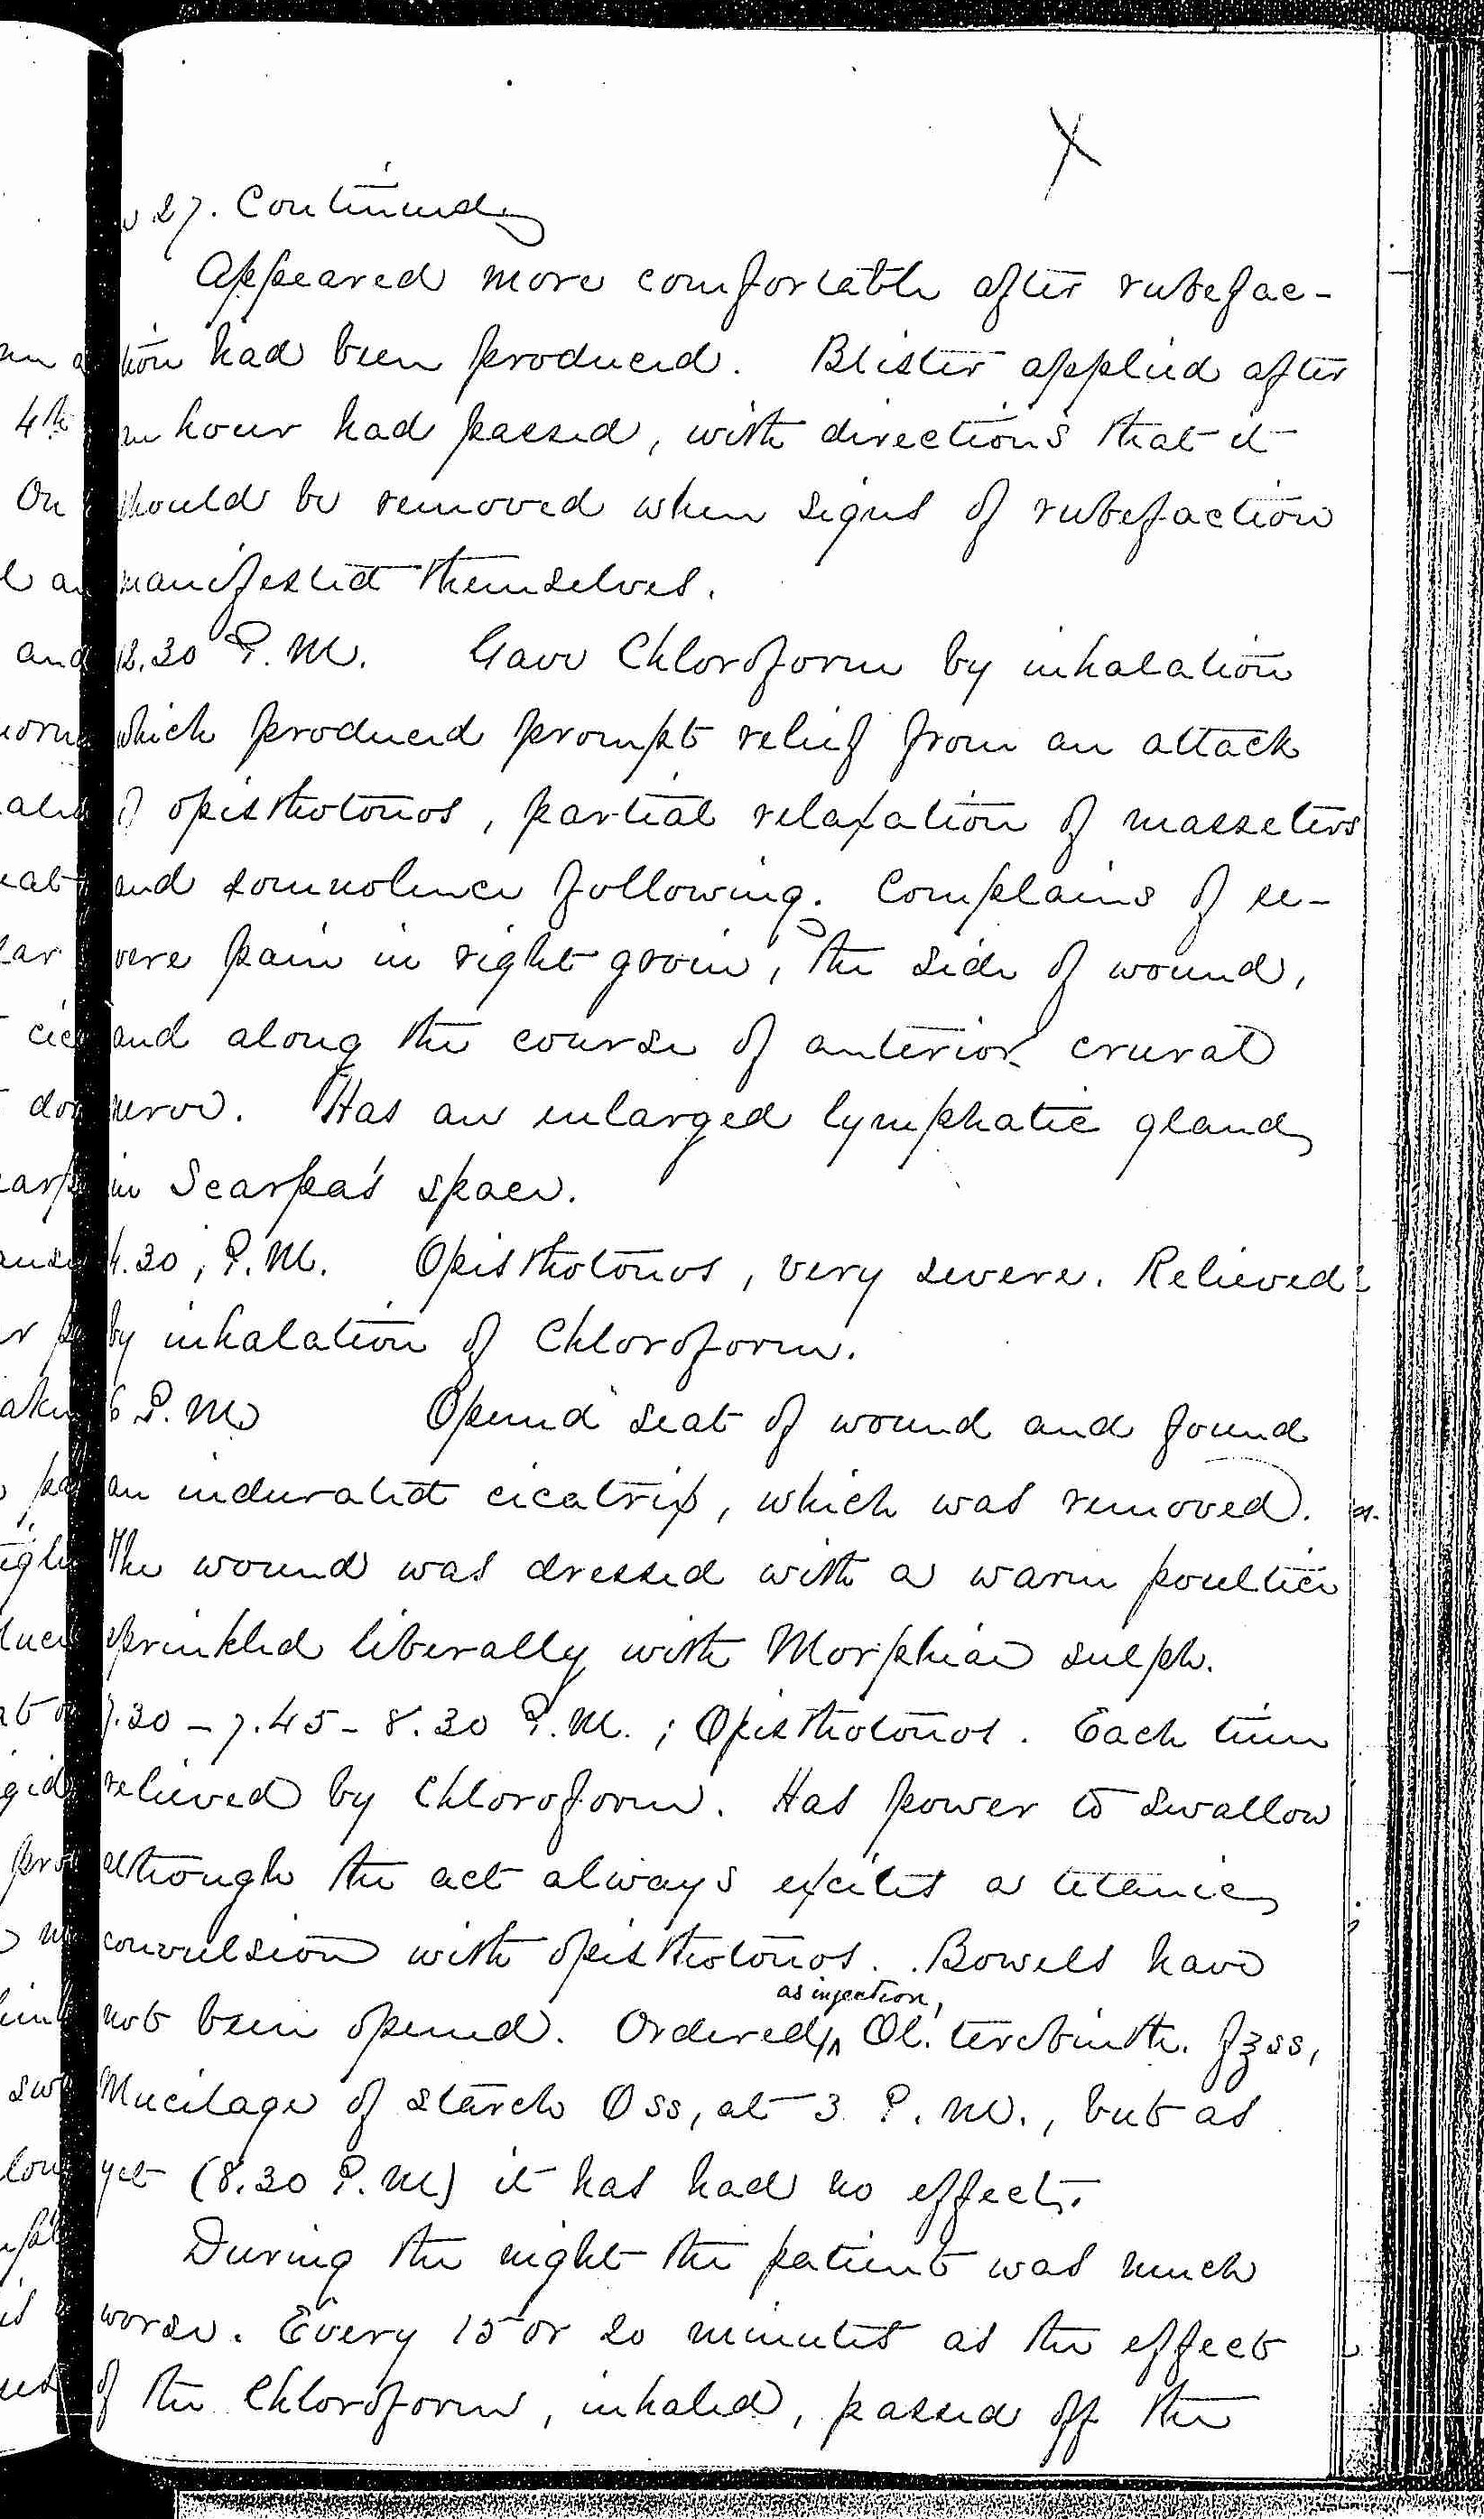 X
27. Continued
Appeared more comfortable after rubefac-
tion had been produced. Blister applied after
an hour had passed, with directions that it
should be removed when signs of rubefaction
manifested themselves.
12.30 P.M. Gave Chloroform by inhalation
which produced prompt relief from an attack
of opisthotonos, partial relaxation of masseters
and somnolence following. Complains of se-
vere pain in right groin, the side of wound,
and along the course of anterior crural
nerve. Has an enlarged lymphatic gland
in Scarpa's space.
4.30, P.M. Opisthotonos, very severe. Relieved
by inhalation of Chloroform.
6 P.M. Opened seat of wound and found
an indurated cicatrix, which was removed.
The wound was dressed with a warm poultice
sprinkled liberally with Morphiae sulph.
7.30 - 7.45 - 8.30 P.M.; Opisthotonos. Each time
relieved by Chloroform. Has power to swallow
although the act always excites a tetanic
convulsion with opisthotonos. Bowels have
as injection,
not been opened. Ordered ^ Ol. terebinth. f℥ss,
Mucilage of starch Oss, at 3 P.M., but as
yet (8.30 P.M) it has had no effect.
During the night the patient was much
worse. Every 15 or 20 minutes as the effect
of the Chloroform, inhaled, passed off the